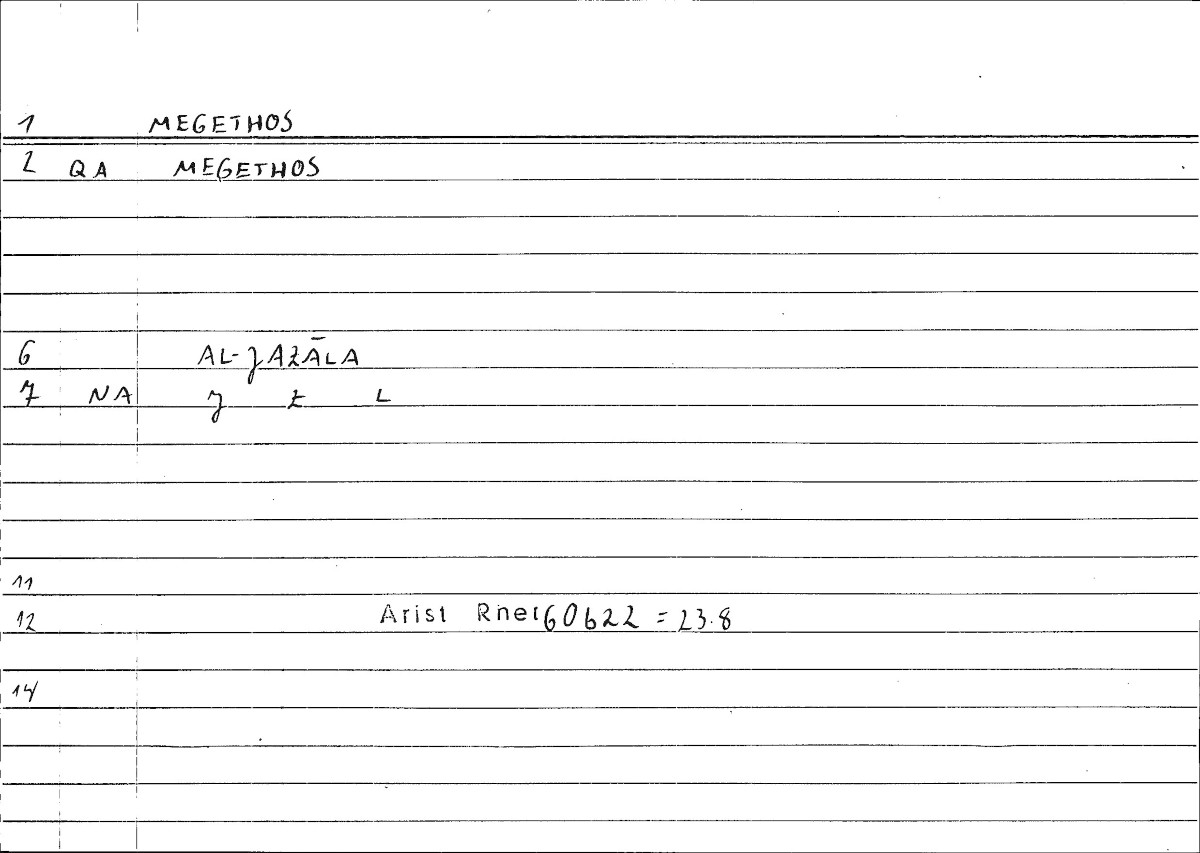 1 MEGETHOS
2 QA MEGETHOS
6 AL-ȝAZĀLA
7 NA ȝ Z L
11
12 Arist Rhet 60b22 = 23.8
14